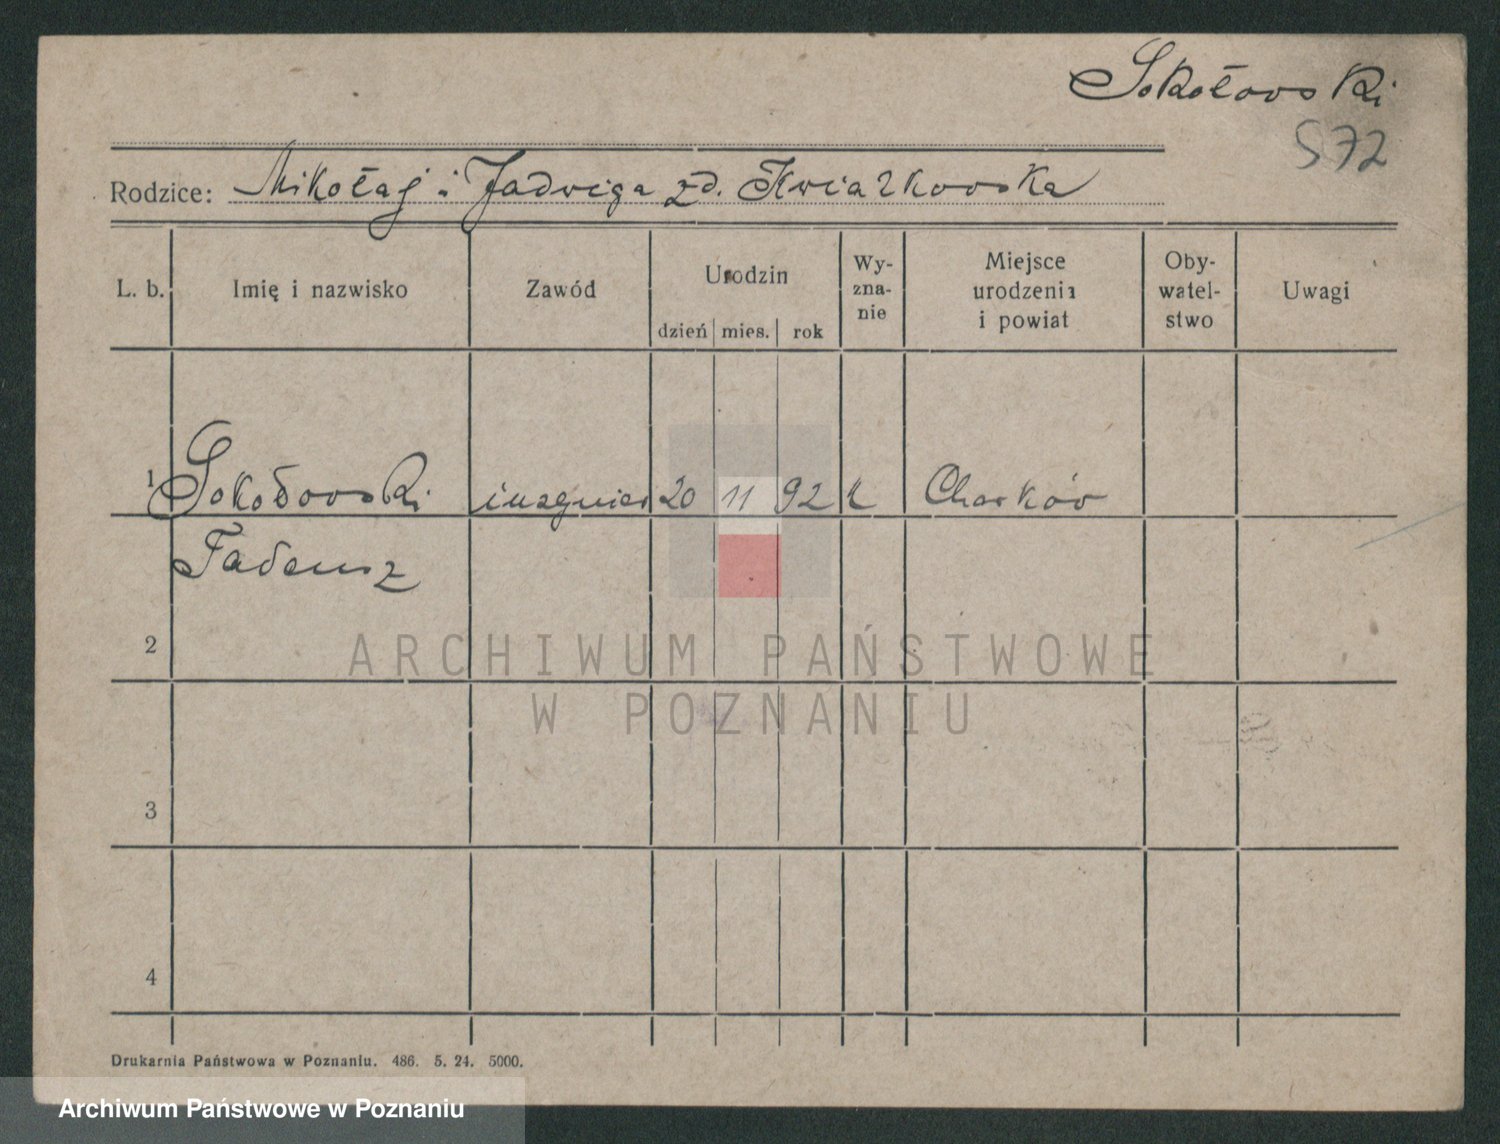 Sokołowski
572
Rodzice: Mikołaj i Jadwiga zd. Kwiatkowska
L. b. Imię i nazwisko Zawód Urodzin dzień mies. rok Wy-zna-nie Miejsce urodzenia i powiat Oby-watel-stwo Uwagi
1 Sokołowski inżynier 20 11 92 k Charków
Tadeusz
2
ARCHIWUM PAŃSTWOWE
W POZNANIU
3
4
Drukarnia Państwowa w Poznaniu. 486. 5. 24. 5000.
Archiwum Państwowe w Poznaniu